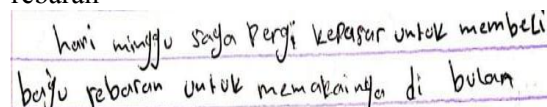 rebaran
hari minggu saya pergi kepasar untuk membeli
baju rebaran untuk memakainya di bulan